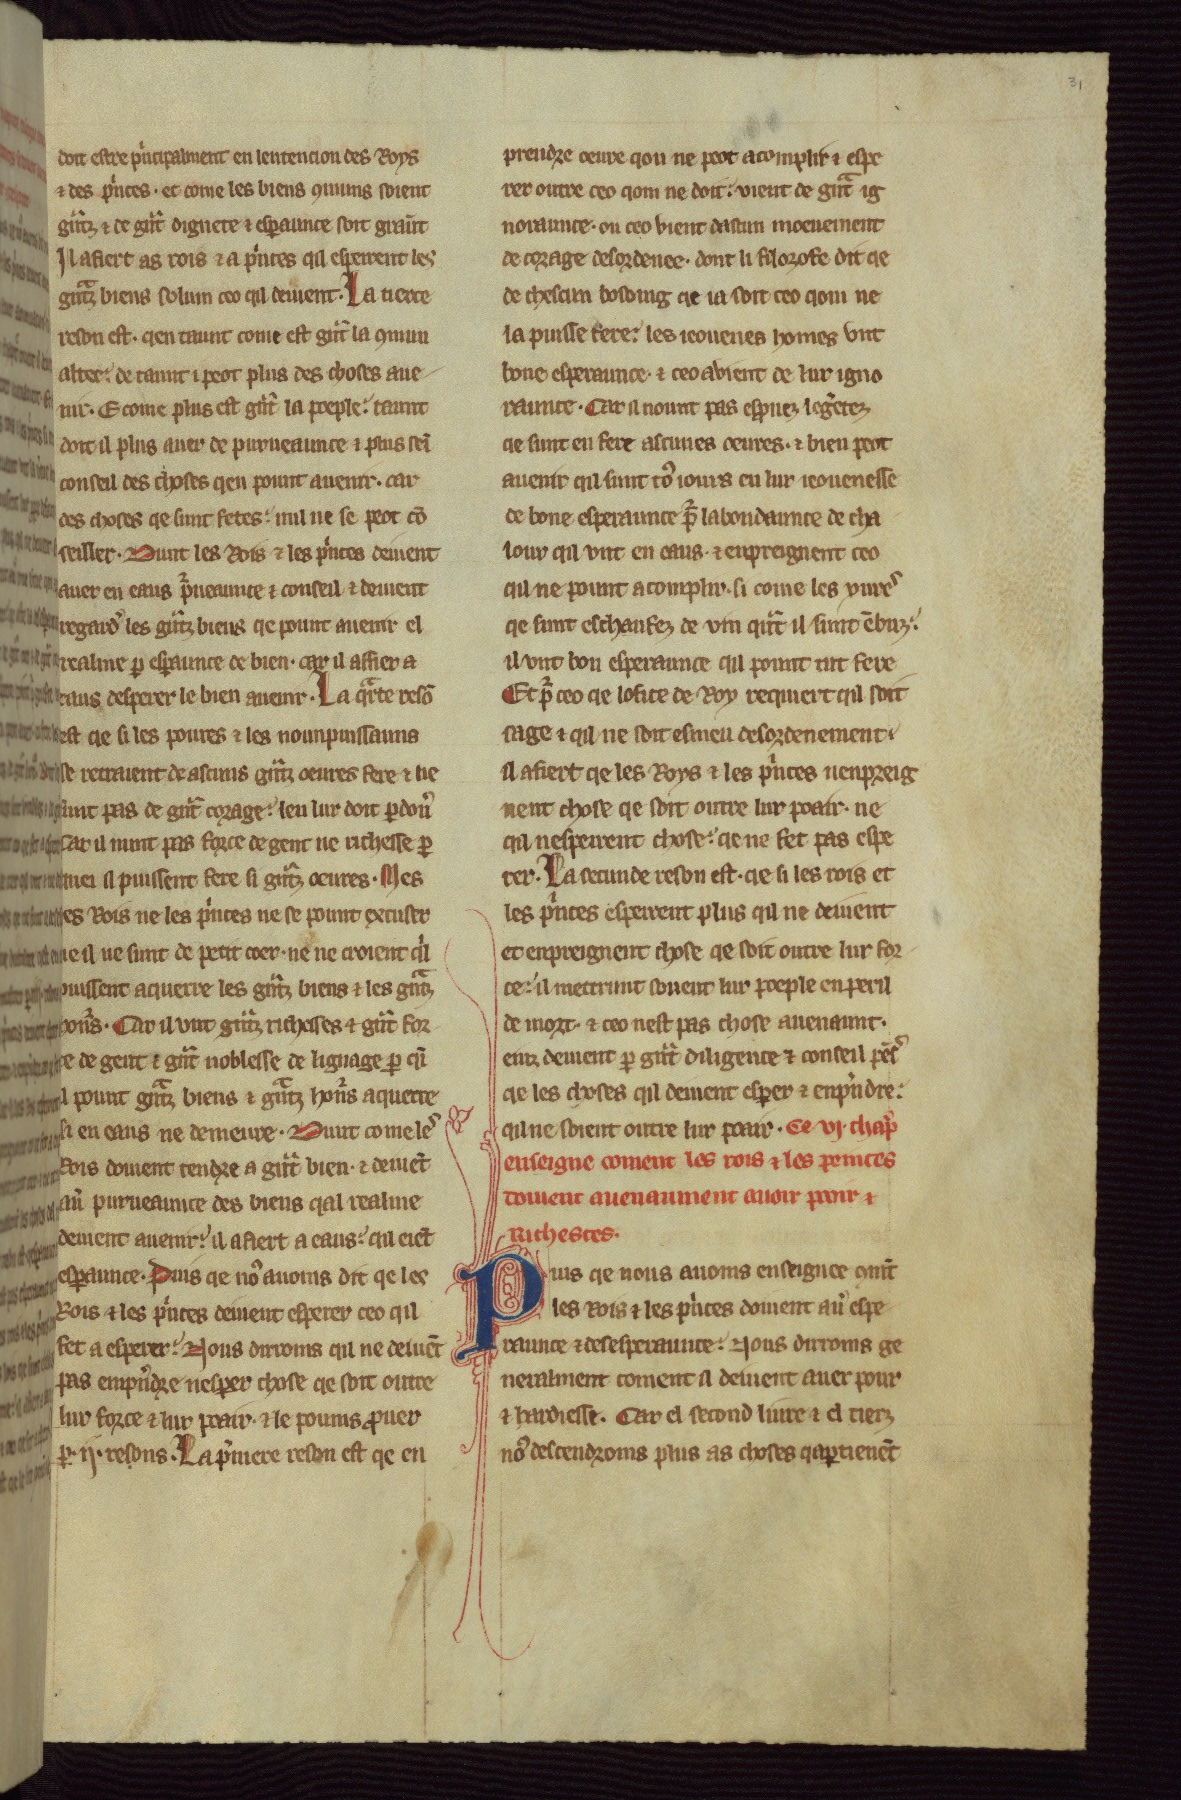 31
doit estre p'ncipalment en lentencion des Roys
⁊ des p'nces · et come les biens ꝯmuns soient
g̃ntz ⁊ de g̃nt dignete ⁊ esperaunce soit graũt
Il afiert as rois ⁊ a p'nces qil espeirent les
g̃ntz biens solum ceo qil deiuent · La tierce
reson est · qen taunt come est g̃nt la ꝯmun
altee : de taunt i peot plus des choses aue
nir · E come plus est g̃nt la poeple : taunt
doit il plus auer de purueaunce ⁊ plus sen
conseil des choses qen pount auenir · car
des choses qe sunt fetes : nul ne se peot cō
seiller · Dunt les Rois ⁊ les p'nces deiuent
auer en eaus p̃ueaunce ⁊ conseil ⁊ deiuent
regard' les g̃ntz biens qe pount auenir el
realme ꝑ esꝑaunce de bien · car il affier a
eaus desperer le bien auenir · La q̃rte resō
est qe si les poures ⁊ les nounpuissauns
se retraient de ascuns g̃ntz oeures fere ⁊ ne
unt pas de g̃nt corage : len lur doit ꝑdoũ
Car il nunt pas force de gent ne richesse ꝑ
quei il puissent fere si g̃ntz oeures · Mes
les Rois ne les p'nces ne se pount excuser
qe il ne sunt de petit coer · ne ne croient q̃l
puissent aquerre les g̃ntz biens ⁊ les g̃ntz
hon̄s · Car il vnt g̃ntz richesses ⁊ g̃nt for
ce de gent ⁊ g̃nt noblesse de lignage ꝑ qũ
il pount g̃ntz biens ⁊ g̃ntz hon̄s aquerre
si en eaus ne demeure · Dunt come le's
Rois doiuent tendre a g̃nt bien · ⁊ deiuẽt
aũ purueaunce des biens qal realme
deiuent auenir : il afiert a eaus : qil eiẽt
esꝑaunce · Puis qe no' auoms dit qe les
Rois ⁊ les p'nces deiuent esperer ceo qil
fet a esperer : Nous dirroms qil ne deiuẽt
pas emp'ndre nesper chose qe soit outre
lur force ⁊ lur poair · ⁊ le poums ꝓuer
ꝑ · ij · resons · La p'miere reson est qe en
prendre oeure qou ne peot acomplir ⁊ espe
rer outre ceo qom ne doit : vient de g̃nt ig
noraunce · ou ceo vient dascun moeuement
de corage desordenee · dont li filozofe dit qe
de chescun bosoing qe ia soit ceo qom ne
la puisse fere : les ieouenes homes vnt
bone esperaunce · ⁊ ceo avient de lur igno
raunce · Car il nount pas espuez legeretez
qe sunt en fere ascunes oeures · ⁊ bien peot
auenir qil sunt to' iours en lur ieouenesse
de bone esperaunce p̃ labondaunce de cha
lour qil vnt en eaus · ⁊ enpreignent ceo
qil ne pount acomplir · si come les yure's
qe sunt eschaufez de vin q̃nt il sunt ẽbuz :
il vnt bon esperaunce qil pount tut fere
Et p̃ ceo qe lofice de Roy requiert qil soit
sage ⁊ qil ne soit esmeu desordenement ·
il afiert qe les Roys ⁊ les p'nces nenpreig
nent chose qe soit outre lur poair · ne
qil nespeirent chose : qe ne fet pas espe
rer · La secunde reson est · qe si les rois et
les p'nces espeirent plus qil ne deiuent
et enpreignent chose qe soit outre lur for
ce : il mettrunt souent lur poeple en peril
de mort · ⁊ ceo nest pas chose auenaunt ·
einz deiuent ꝑ g̃nt diligence ⁊ conseil pẽs'
qe les choses qil deiuent esꝑer ⁊ enp'ndre :
qil ne soient outre lur poair · Ce vj · chap̃
enseigne coment les rois ⁊ les princes
doiuent auenaument auoir poair ⁊
Richesces ·
Puis qe nous auoms enseignee ꝯmẽt
les Rois ⁊ les p'nces doiuent aũ espe
raunce ⁊ desesperaunce : Nous dirroms ge
neralment coment il deiuent auer pour
⁊ hardiesse · Car el second liure ⁊ el tierz
no' descendroms plus as choses qaꝑtienẽt